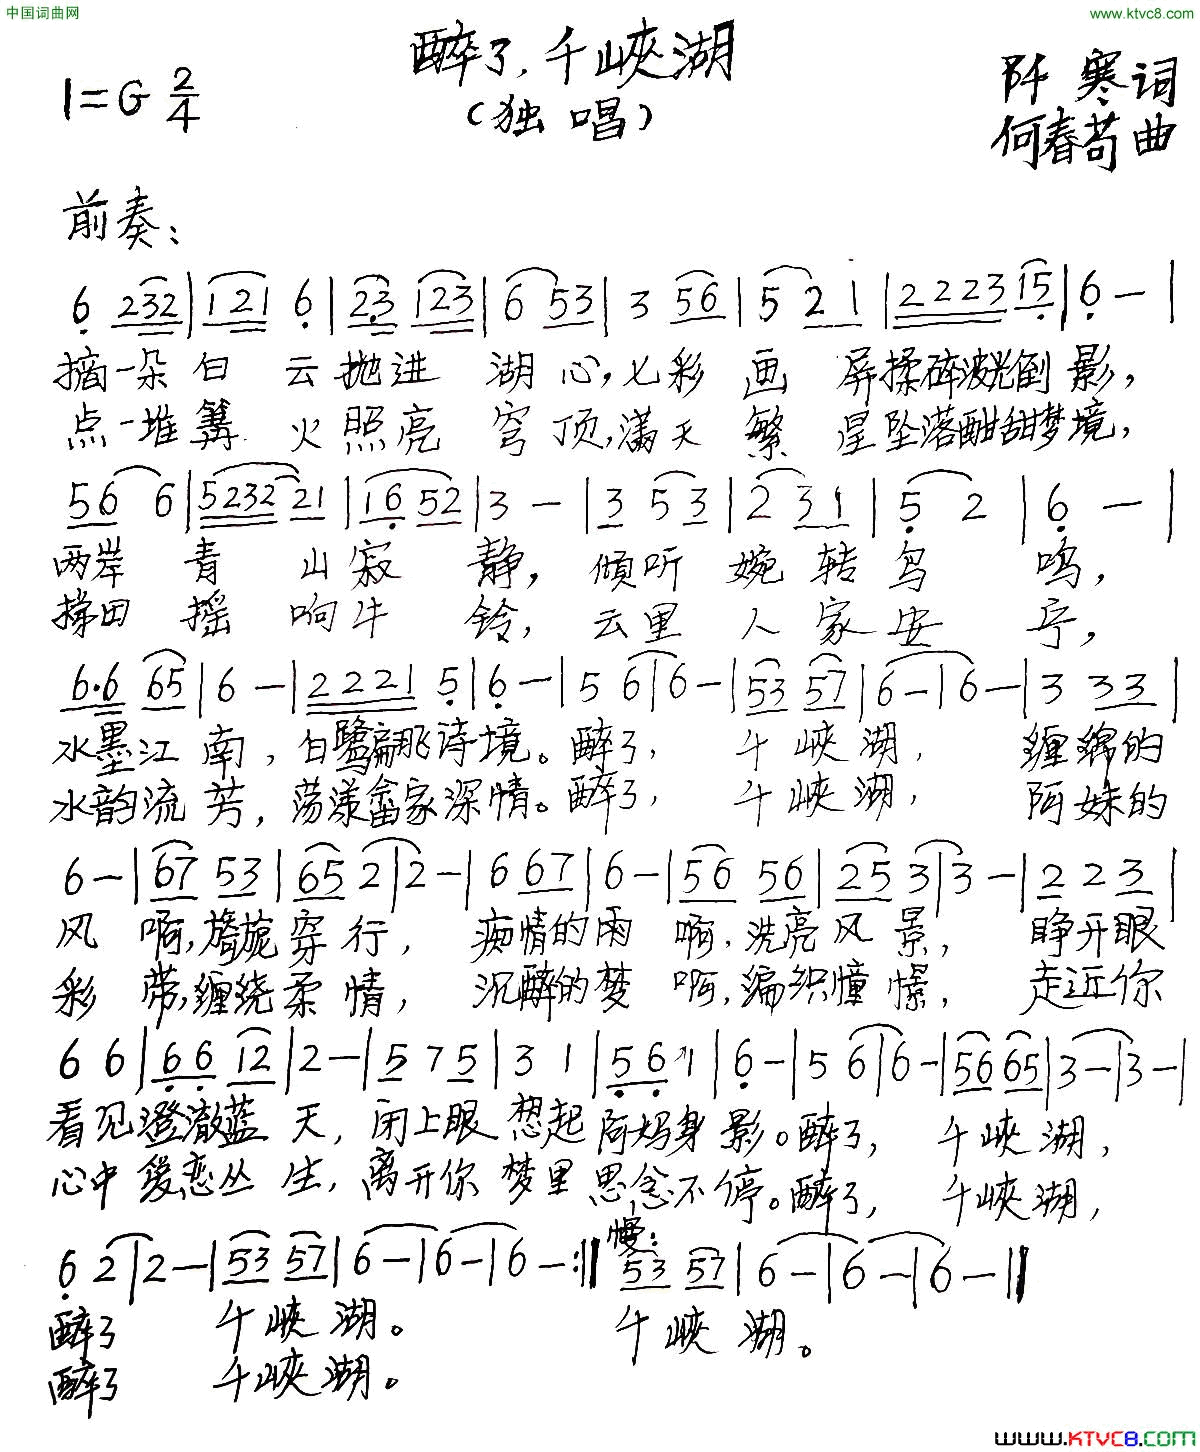 中国词曲网
www.ktvc8.com
醉了,千峡湖
(独唱)
1=G 2/4
阡寒词
何春苟曲
前奏:
6 232|121 6|23 123|6 53|3 56|5 21|2223 15|6 —|
摘一朵白云抛进湖心,七彩画屏揉碎波光倒影,
点一堆篝火照亮穹顶,满天繁星坠落酣甜梦境,
56 6|5232 21|16 52|3 —|3 5 3|2 31|5 2|6 —|
两岸青山寂静,倾听婉转鸟鸣,
梯田摇响牛铃,云里人家安宁,
6·6 65|6 —|2221 5|6 —|5 6|6 —|53 57|6 —|6 —|3 33|
水墨江南,白鹭翩飞诗境。醉了,千峡湖,缠绵的
水韵流芳,荡漾畲家深情。醉了,千峡湖,阿妹的
6 —|67 53|65 2|2 —|6 67|6 —|56 56|25 3|3 —|2 2 3|
风啊,旖旎穿行,痴情的雨啊,洗亮风景,睁开眼
彩带,缠绕柔情,沉醉的梦啊,编织憧憬,走近你
6 6|66 12|2 —|5 7 5|3 1|56 1|6 —|5 6|6 —|56 65|3 —|3 —|
看见澄澈蓝天,闭上眼想起阿妈身影。醉了,千峡湖,
心中爱恋丛生,离开你梦里思念不停。醉了,千峡湖,
慢:
6 2|2 —|53 57|6 —|6 —|6 —:‖53 57|6 —|6 —|6 —‖
醉了千峡湖。千峡湖。
醉了千峡湖。
www.KTVC8.com